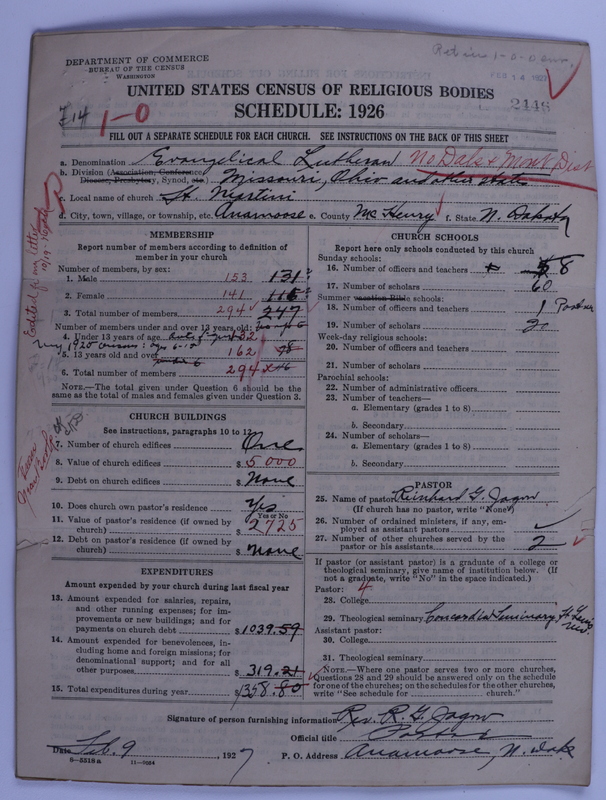 DEPARTMENT OF COMMERCE
BUREAU OF THE CENSUS
WASHINGTON
FEB 14 1927
UNITED STATES CENSUS OF RELIGIOUS BODIES
2448
SCHEDULE: 1926
1-0
FILL OUT A SEPARATE SCHEDULE FOR EACH CHURCH. SEE INSTRUCTIONS ON THE BACK OF THIS SHEET
a. Denomination Evangelical Lutheran No Dak & Mont Dist
b. Division (Association, Conference
Diocese, Presbytery, Synod, etc.) Missouri, Ohio and other states
c. Local name of church St. Martini
d. City, town, village, or township, etc. Anamoose e. County McHenry f. State N. Dakota
MEMBERSHIP
Report number of members according to definition of member in your church
Number of members, by sex:
1. Male 153 131
2. Female 141 116
3. Total number of members 294 247
Number of members under and over 13 years old:
4. Under 13 years of age 132
5. 13 years old and over 162
6. Total number of members 294
NOTE.—The total given under Question 6 should be the same as the total of males and females given under Question 3.
CHURCH BUILDINGS
See instructions, paragraphs 10 to 12
7. Number of church edifices One
8. Value of church edifices $ 5000
9. Debt on church edifices $ None
10. Does church own pastor's residence Yes
Yes or No
11. Value of pastor's residence (if owned by church) $ 2725
12. Debt on pastor's residence (if owned by church) $ None
EXPENDITURES
Amount expended by your church during last fiscal year
13. Amount expended for salaries, repairs, and other running expenses; for improvements or new buildings; and for payments on church debt $ 1039.59
14. Amount expended for benevolences, including home and foreign missions; for denominational support; and for all other purposes $ 319.21
15. Total expenditures during year $ 1358.80
CHURCH SCHOOLS
Report here only schools conducted by this church
Sunday schools:
16. Number of officers and teachers 8
17. Number of scholars 60
Summer vacation Bible schools:
18. Number of officers and teachers 1 Pastor
19. Number of scholars
Week-day religious schools:
20. Number of officers and teachers
21. Number of scholars
Parochial schools:
22. Number of administrative officers
23. Number of teachers—
a. Elementary (grades 1 to 8)
b. Secondary
24. Number of scholars—
a. Elementary (grades 1 to 8)
b. Secondary
PASTOR
25. Name of pastor Reinhard G. Jagow
(If church has no pastor, write "None")
26. Number of ordained ministers, if any, employed as assistant pastors
27. Number of other churches served by the pastor or his assistants 2
If pastor (or assistant pastor) is a graduate of a college or theological seminary, give name of institution below. (If not a graduate, write "No" in the space indicated.)
Pastor: 4
28. College
29. Theological seminary Concordia Seminary, St. Louis Mo.
Assistant pastor:
30. College
31. Theological seminary
NOTE.—Where one pastor serves two or more churches, Questions 28 and 29 should be answered only on the schedule for one of the churches; on the schedules for the other churches, write "See schedule for church."
Signature of person furnishing information Rev. R. G. Jagow
Official title Pastor
Date Feb. 9, 1927
P. O. Address Anamoose, N. Dak
8—5518a 11—9564